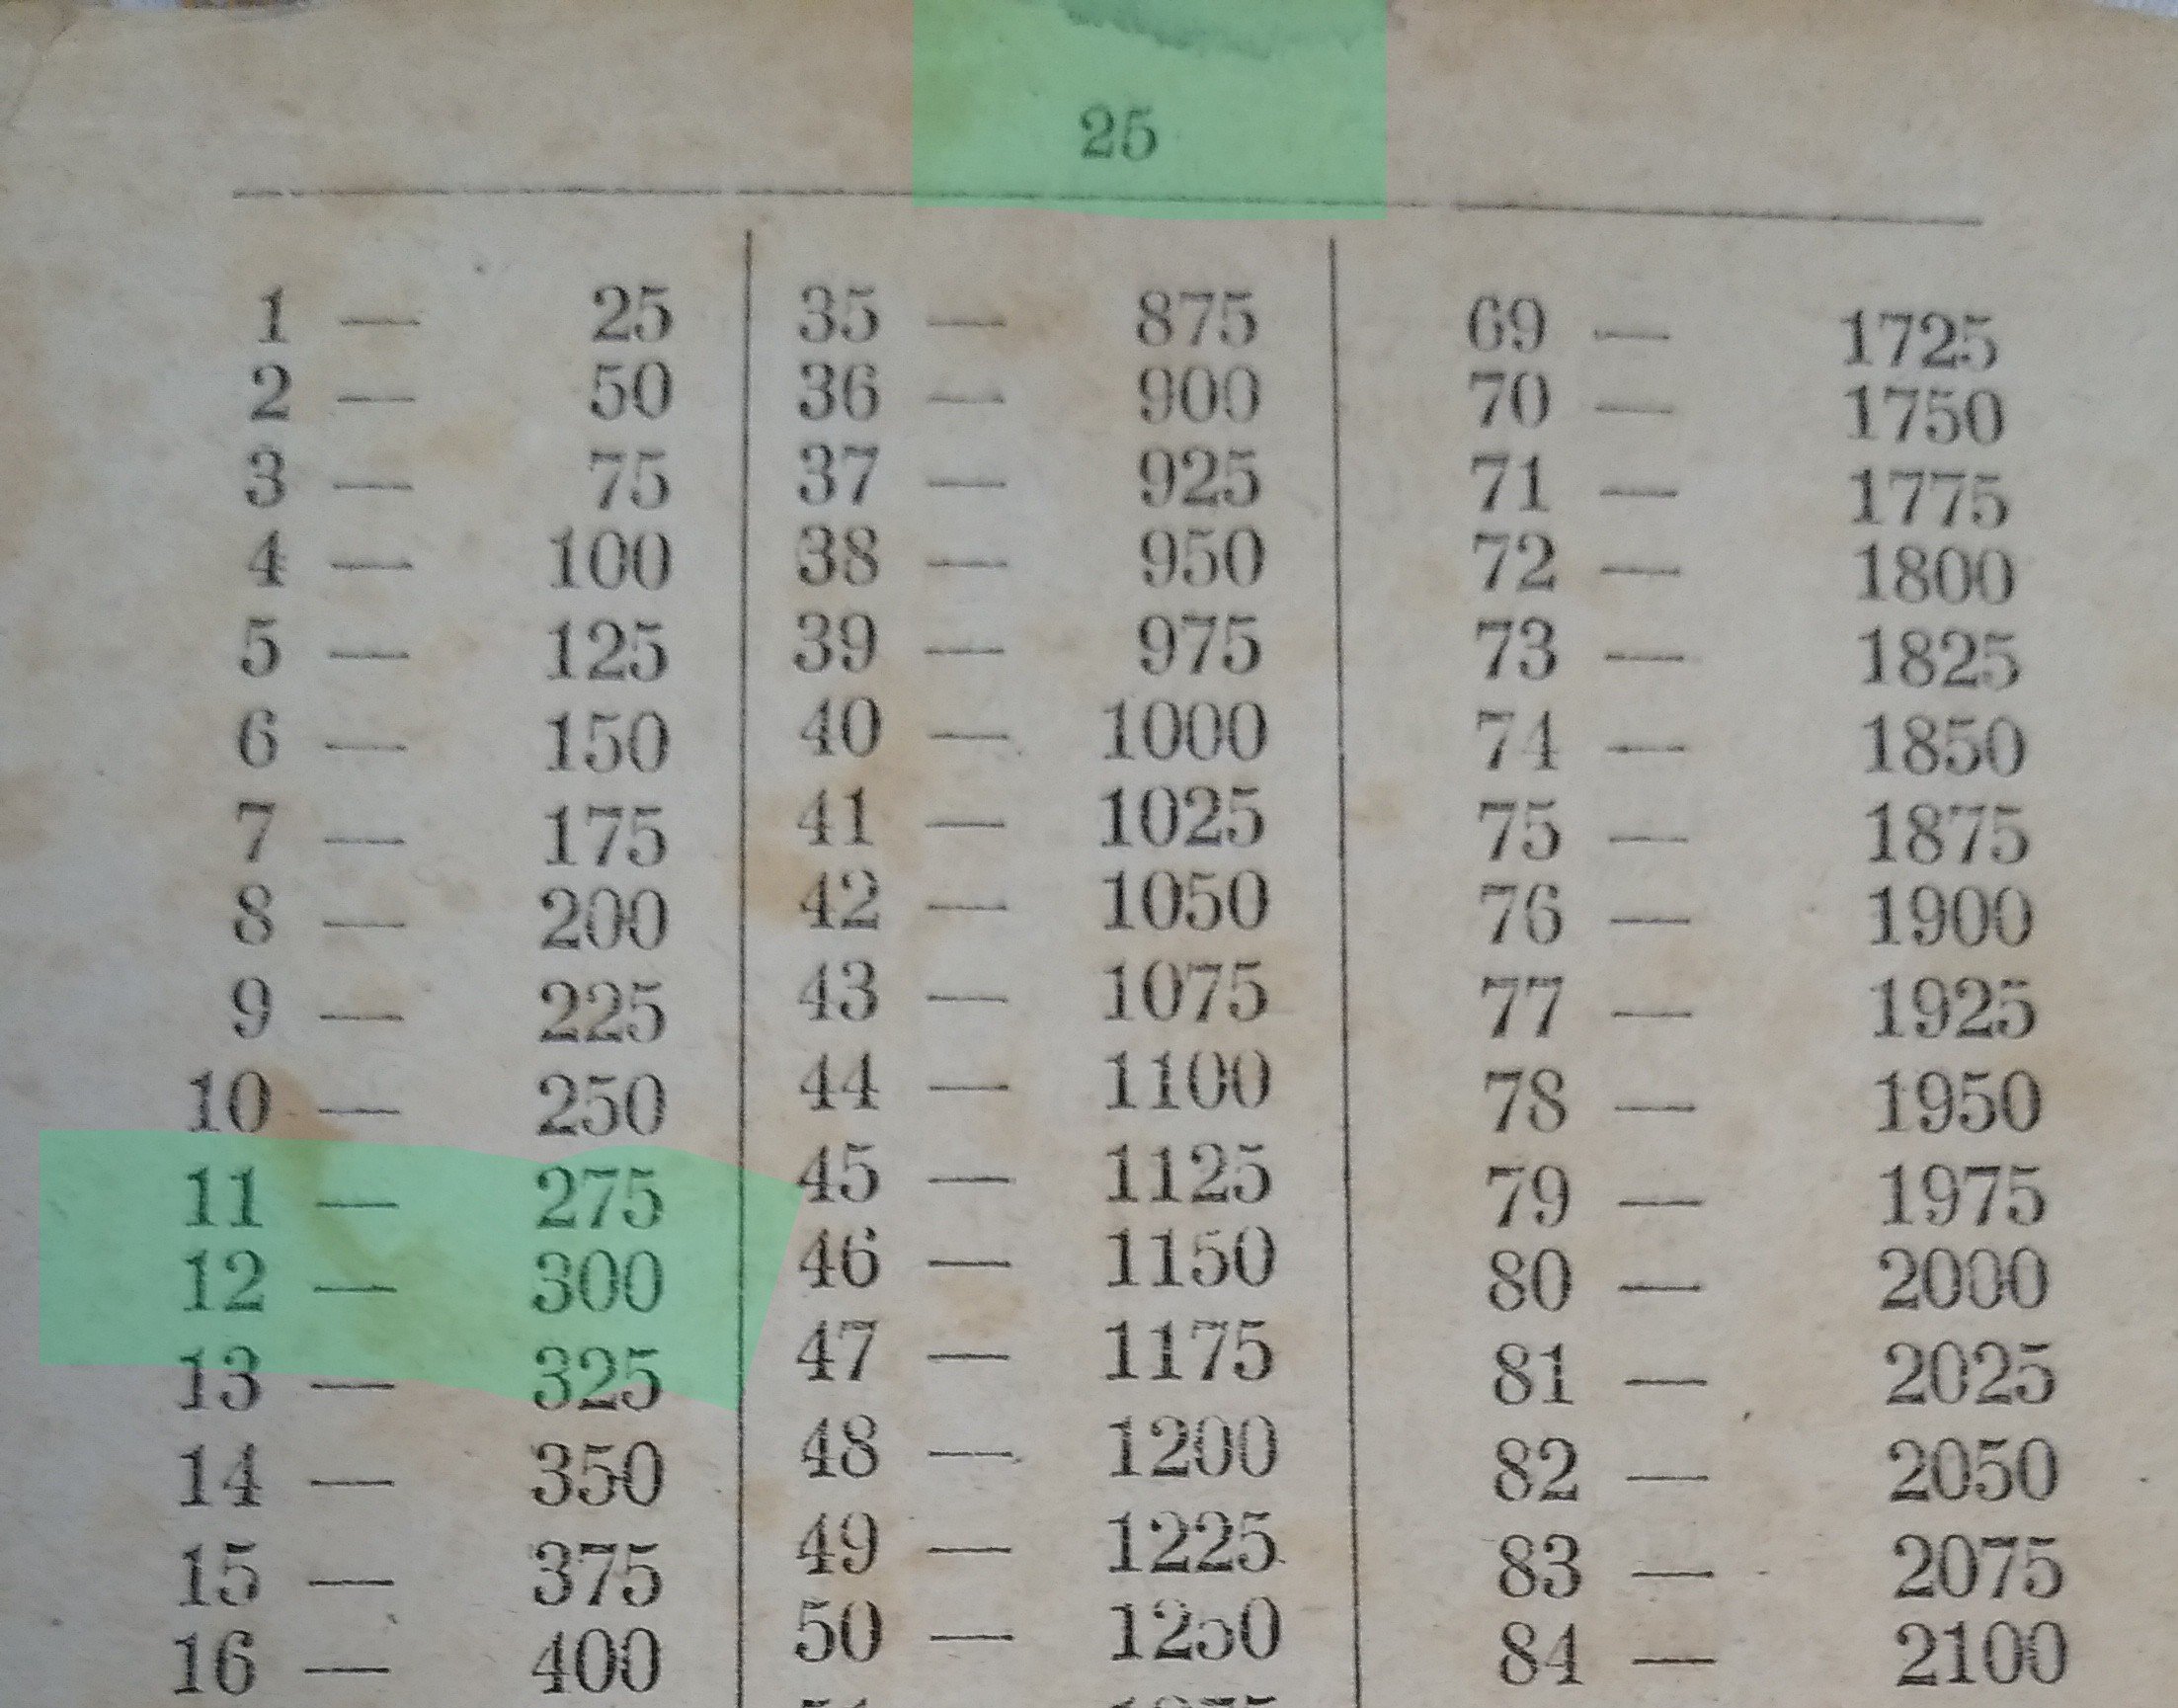 25
1 — 25
2 — 50
3 — 75
4 — 100
5 — 125
6 — 150
7 — 175
8 — 200
9 — 225
10 — 250
11 — 275
12 — 300
13 — 325
14 — 350
15 — 375
16 — 400
35 — 875
36 — 900
37 — 925
38 — 950
39 — 975
40 — 1000
41 — 1025
42 — 1050
43 — 1075
44 — 1100
45 — 1125
46 — 1150
47 — 1175
48 — 1200
49 — 1225
50 — 1250
69 — 1725
70 — 1750
71 — 1775
72 — 1800
73 — 1825
74 — 1850
75 — 1875
76 — 1900
77 — 1925
78 — 1950
79 — 1975
80 — 2000
81 — 2025
82 — 2050
83 — 2075
84 — 2100